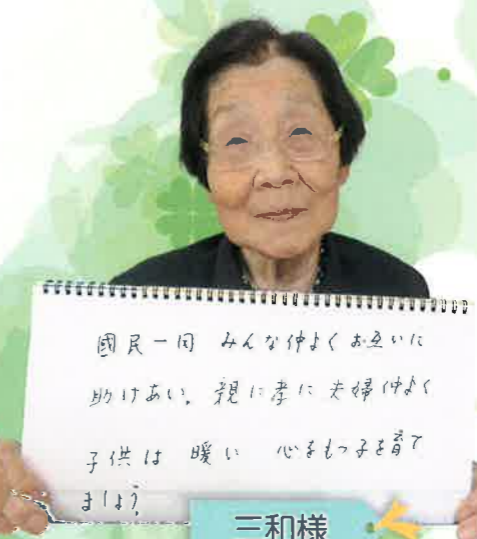 國民一同 みんな仲よくお互いに
助けあい、親に孝に夫婦仲よく
子供は 暖い 心をもつ子を育て
ましょう
三和様